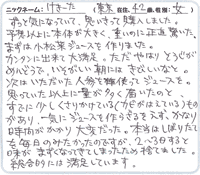 ニックネーム: けきーた (東京 在住、42歳、性別: 女)
ずっと気になっていて、思いきって購入しました。
予想以上に本体が大きく、重いのに正直驚いた。
まずは小松菜ジュースを作りました。
カンタンに出来て大満足。ただ やはり とうがが
めんどうくさい。いそがしい朝にはきびしいなぁと。
次はいただいた人参で無使ってジュースを。
思っていた以上に量が多く 届いたので
すでに少しくさりかけている(カビがはえている)ものが
あり、一気にジュースを作らざるをえず、かなり
時間がかかり大変だった。本当はしぼりたて
を毎日のみたかったのですが、2〜3日すると
味がまずくなってきてしまったので捨て出した。
総合的には満足しています。